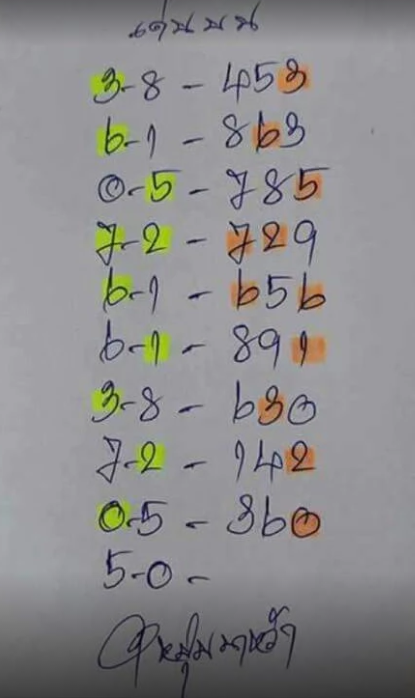 เด่นบน
3-8 - 453
6-1 - 863
0-5 - 785
7-2 - 729
6-1 - 656
6-1 - 891
3-8 - 630
7-2 - 142
0-5 - 360
5-0 -